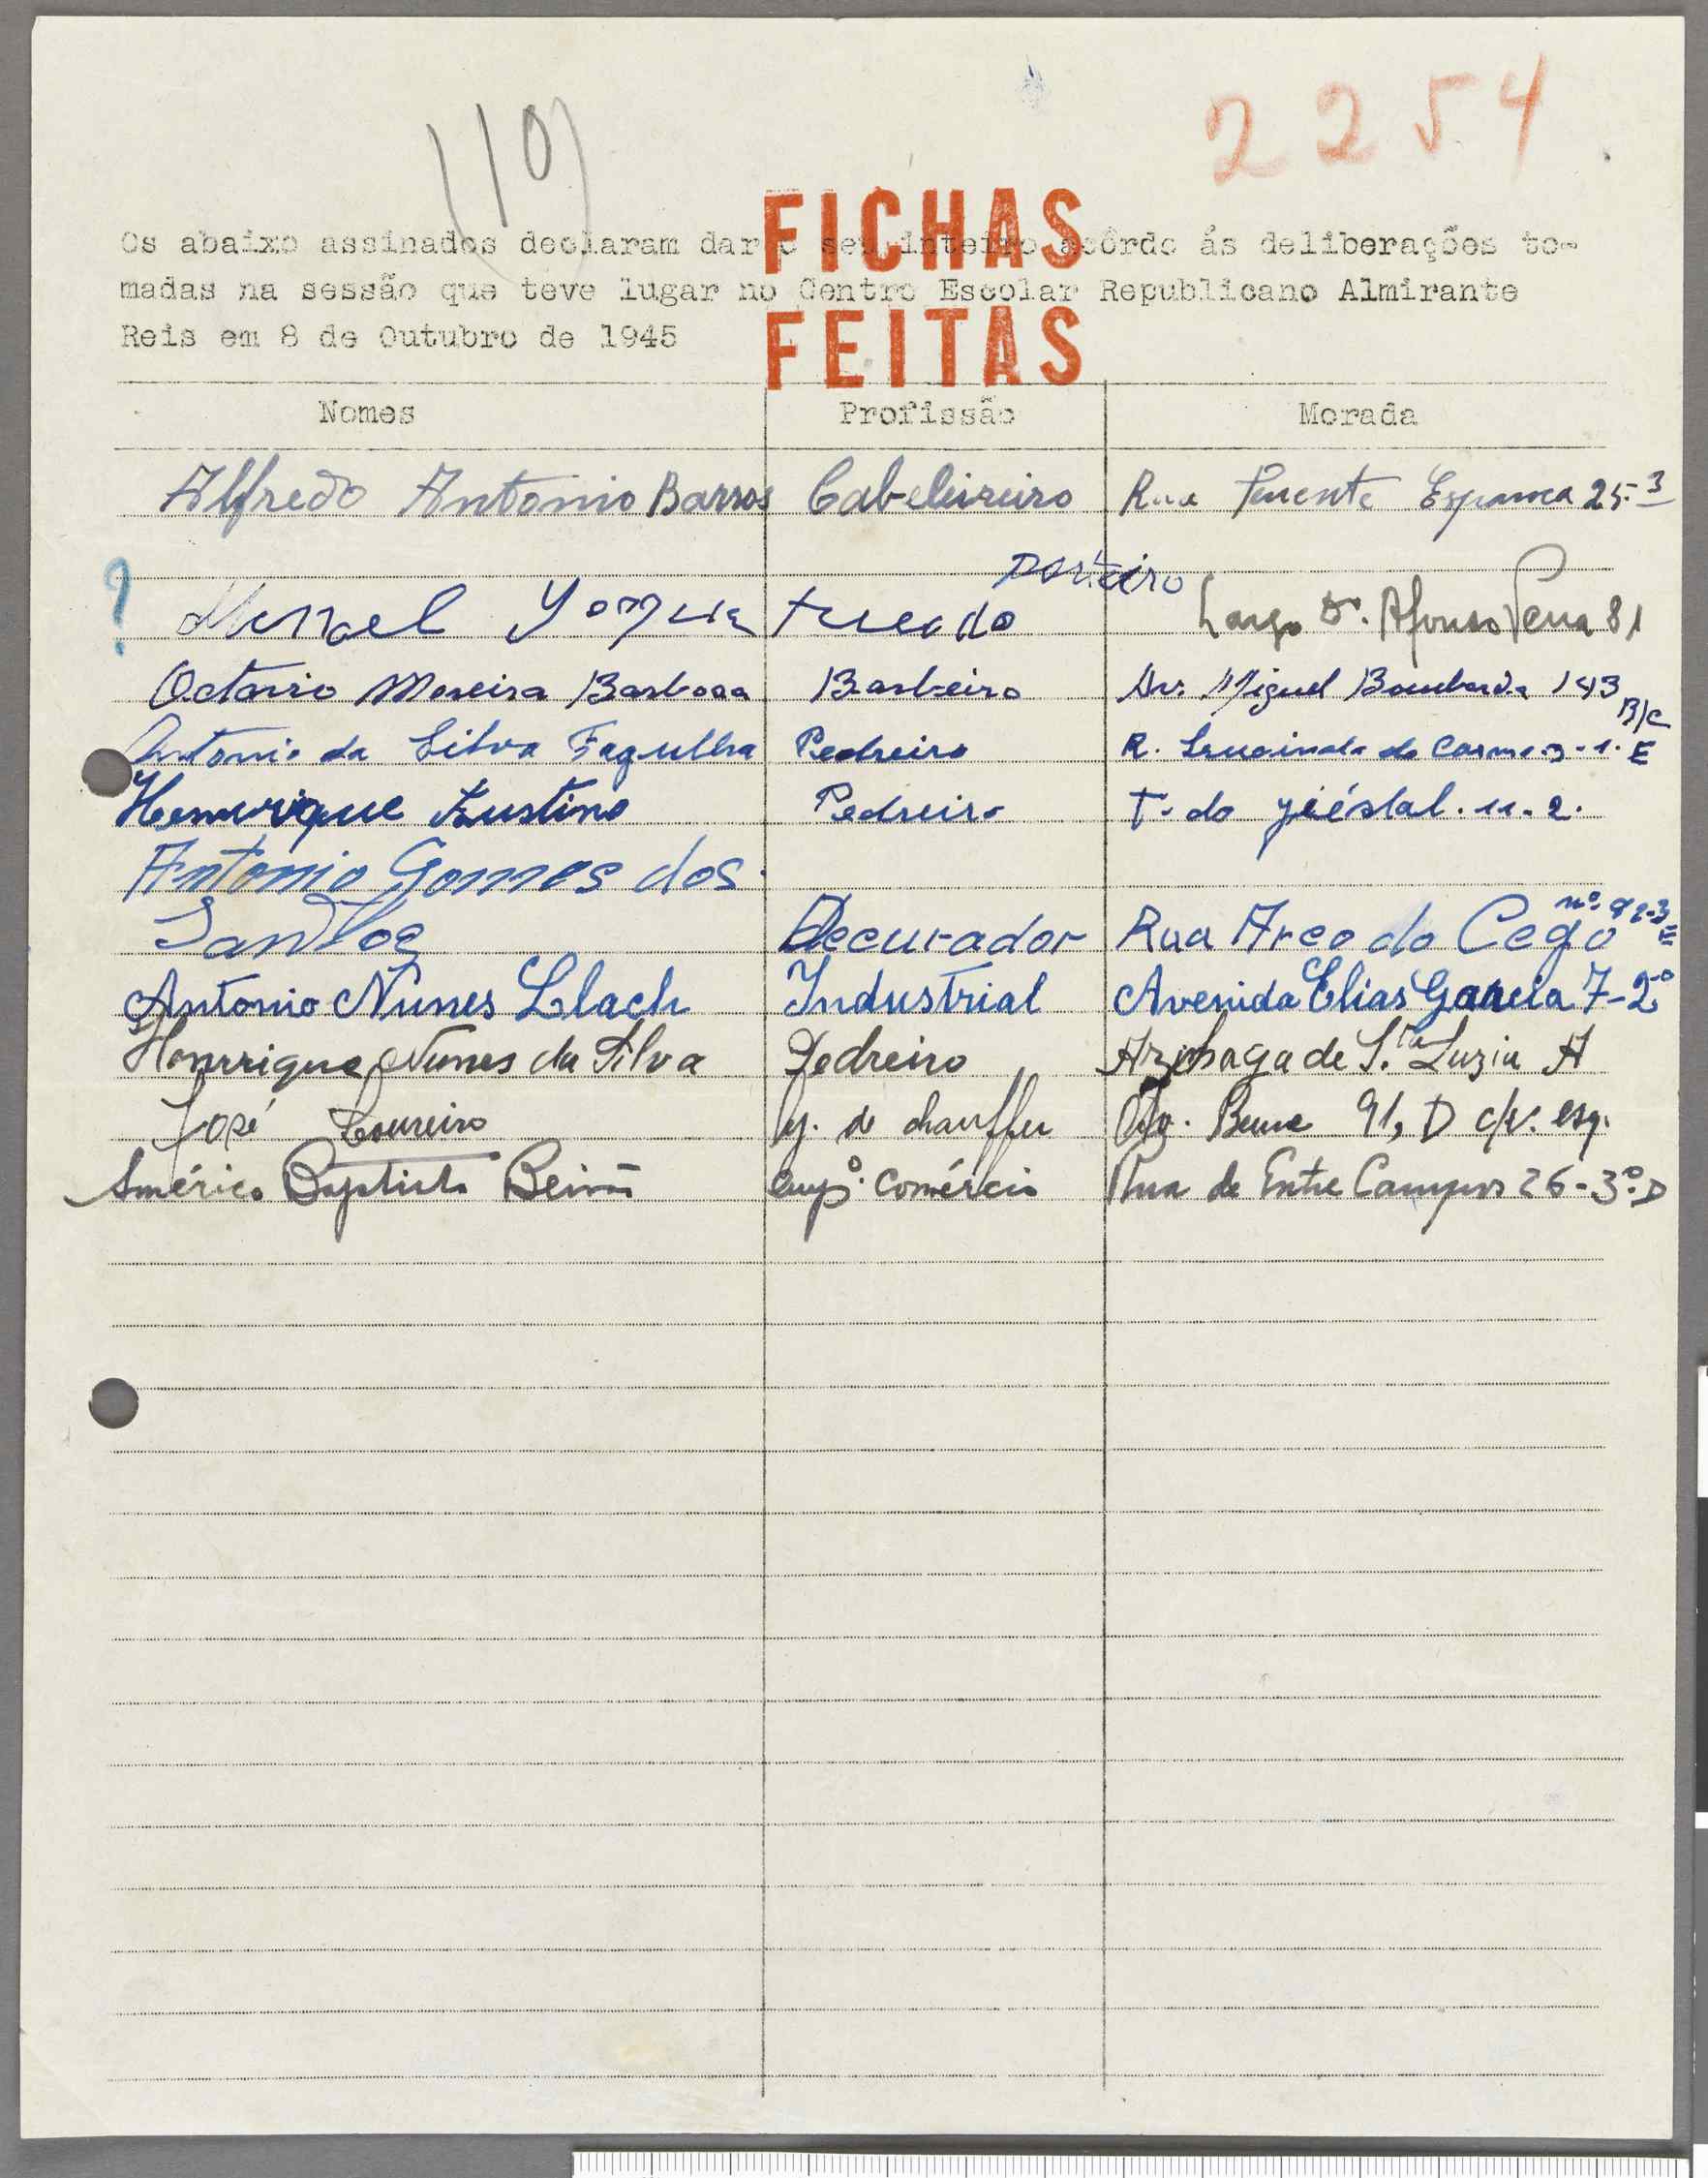 (10)
2254
FICHAS
Os abaixo assinados declaram dar o seu inteiro acôrdo ás deliberações to-
madas na sessão que teve lugar no Centro Escolar Republicano Almirante
FEITAS
Reis em 8 de Outubro de 1945
Nomes Profissão Morada
Alfredo Antonio Barros Cabeleireiro Rua Tenente Espanca 25-3
porteiro
? Largo Dr. Afonso Pena 81
Octavio Moreira Barbosa Barbeiro Av. Miguel Bombarda 143
R/C
Antonio da Silva Fagulha Pedreiro R. do Carmo 3-1. E
Henurique Pedreiro T. do 11.2.
Antonio Gomes dos
Santos Decurador Rua Arco do Cego nº 92-3 E
Antonio Nunes Llach Industrial Avenida Elias Garcia 7-2º
Honrrique Nunes da Silva Pedreiro de S.ta Luzia A
José Loureiro de chauffer 91, D c/v. esq.
Américo Baptista Beirão empº. comércio Rua de Entre Campos 26-3º.D